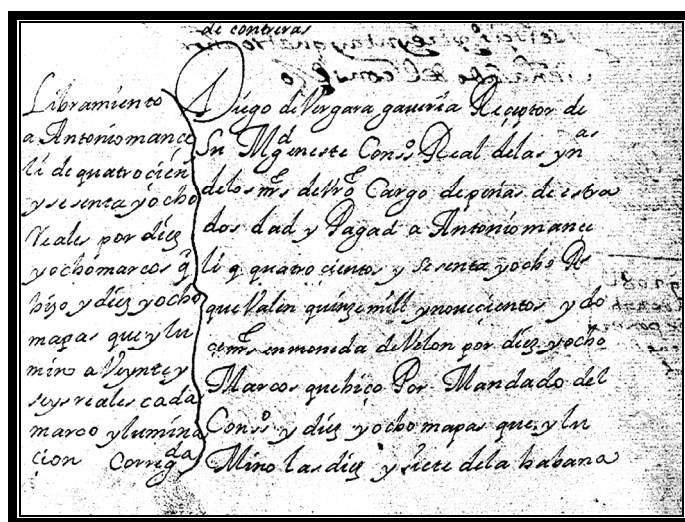 de contreras
Libramiento
a Antonio mance
li de quatrocien
y sesenta y ocho
Reales por diez
y ocho marcos q
hizo y diez y ocho
mapas que ylu
mino a Veynte y
seys reales cada
marco ylumina
çion Correg.da
A Diego de Vergara gaviria Reçeptor de
Su Mgd en este Cons.o Real de las yn.as
de los mrs de Vro Cargo de penas de estra
dos dad y Pagad a Antonio mance
li q quatrocientos y sesenta y ocho Rs
que Valen quinze mill y noveçientos y do
çe mrs en moneda de Vellon por diez y ocho
Marcos que hiço Por Mandado del
Cons.o y diez y ocho mapas que ylu
Mino las diez y siete de la habana